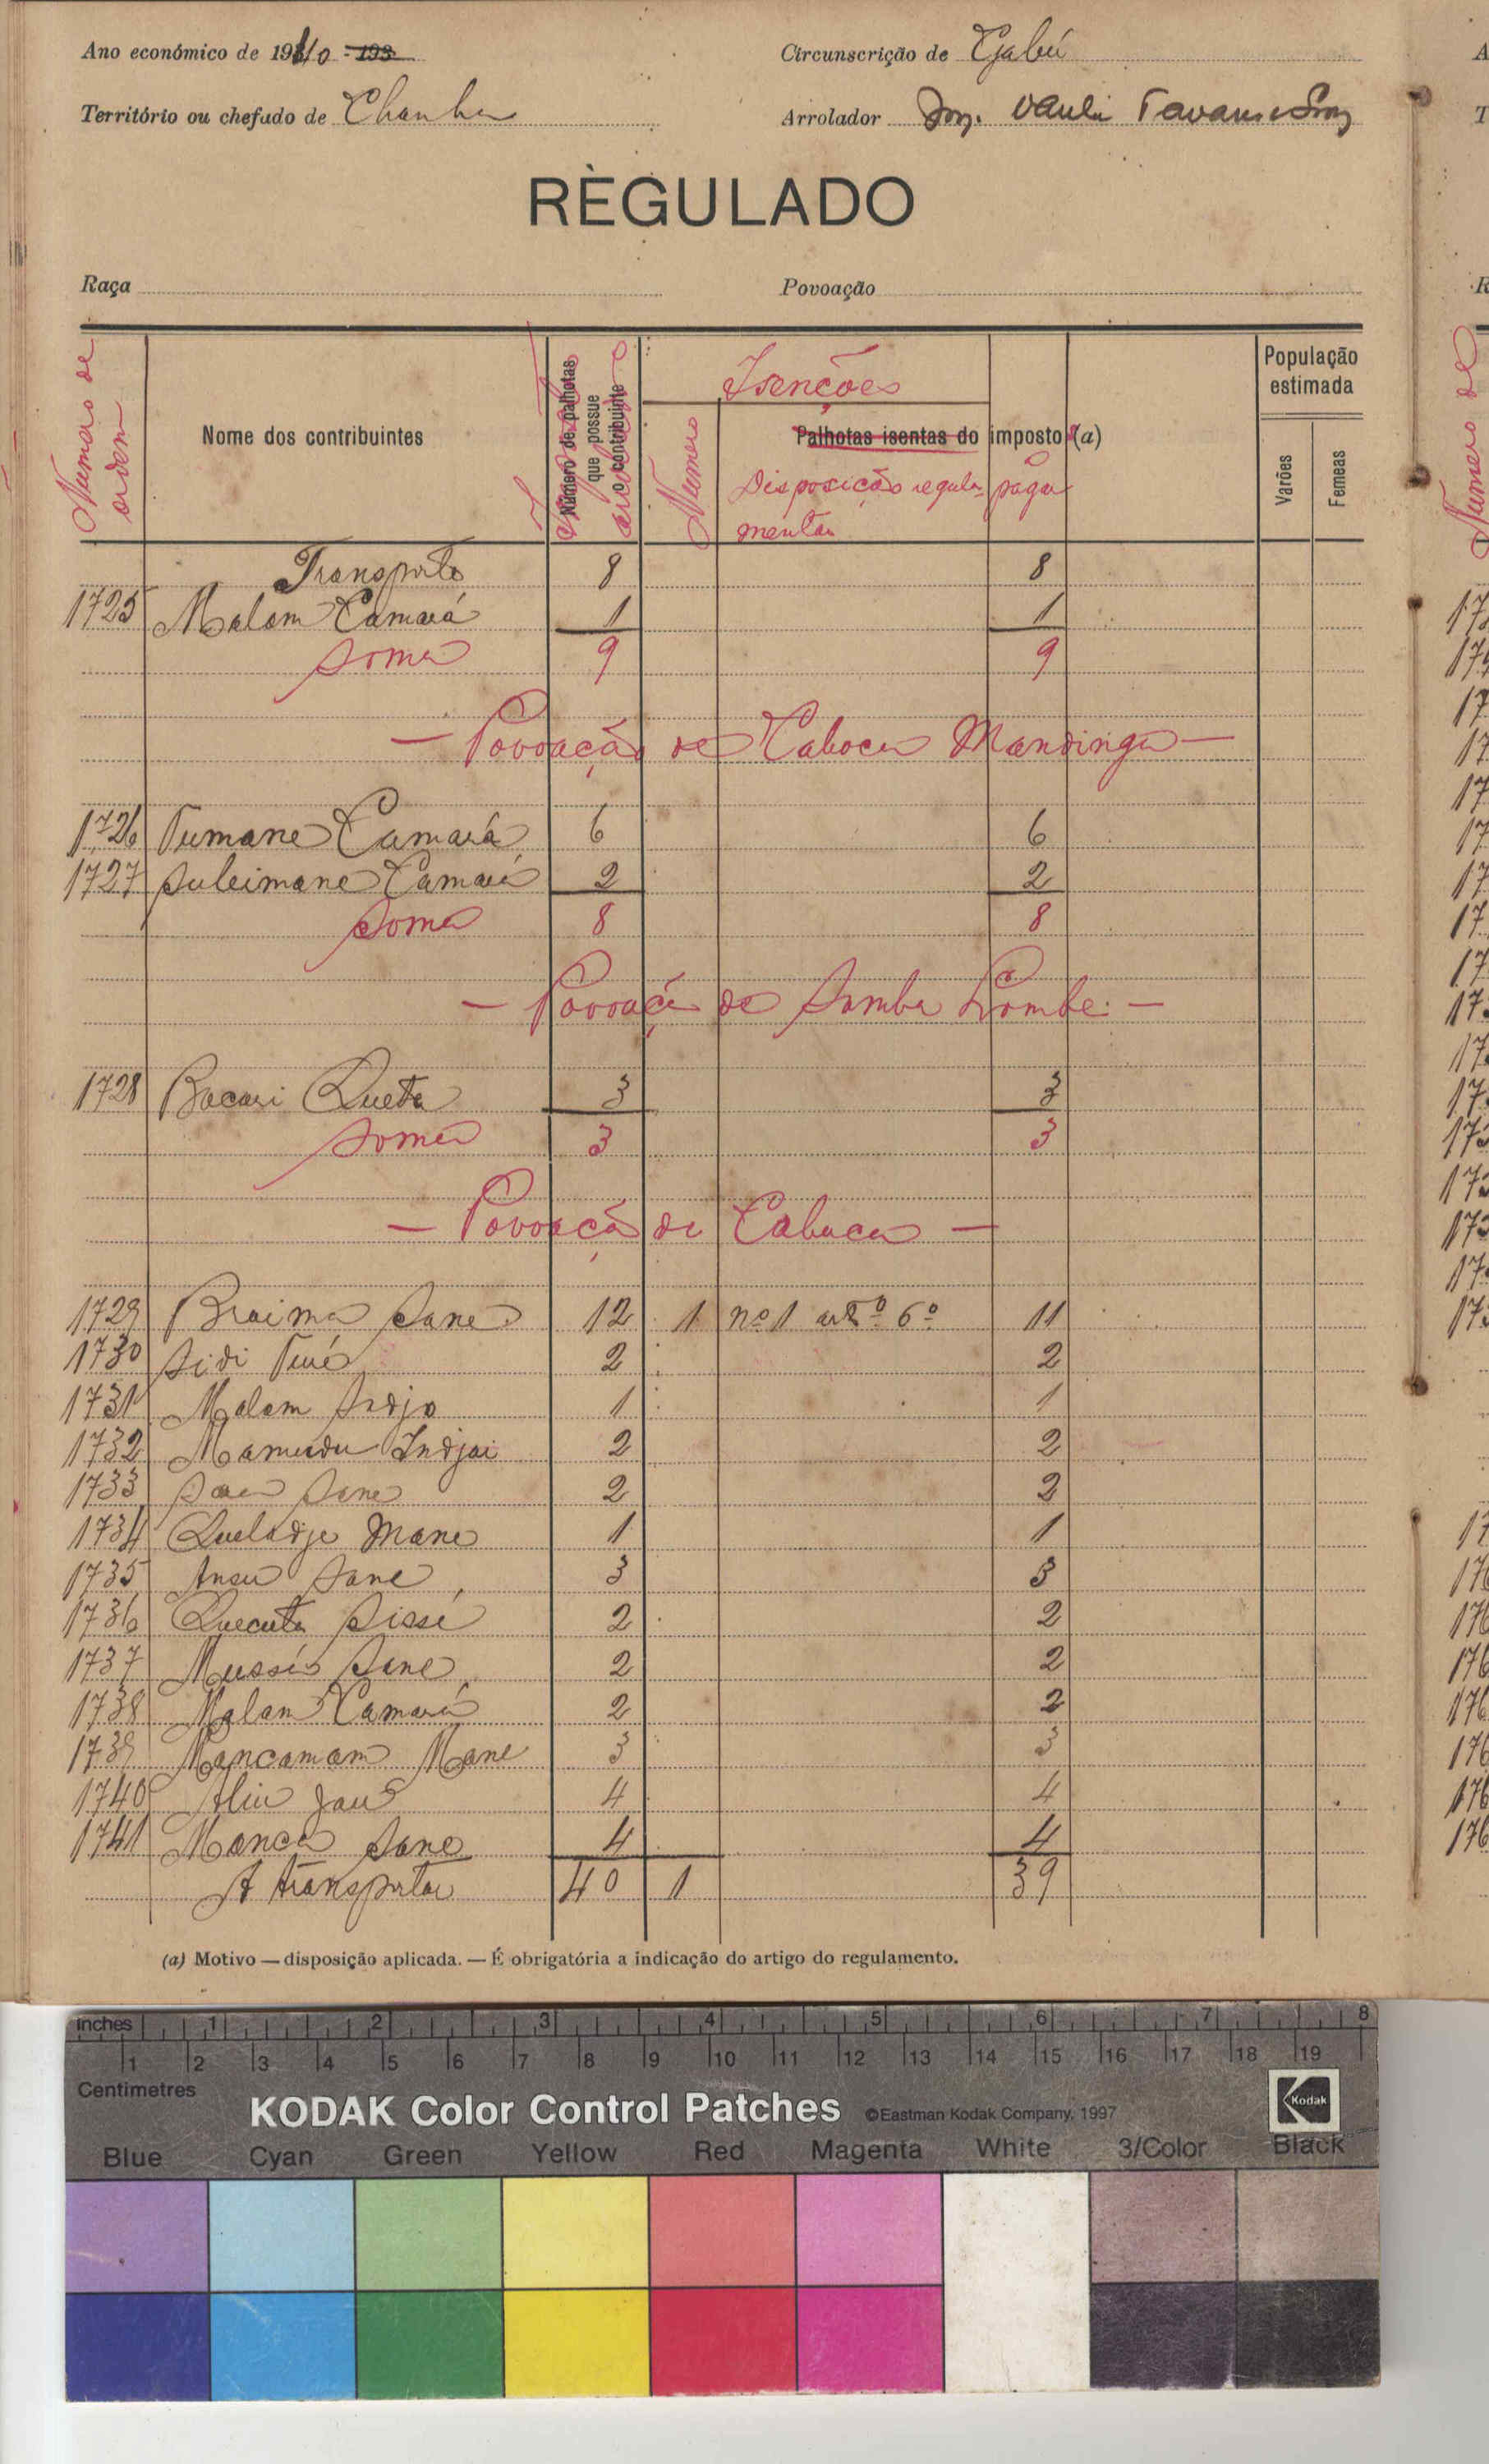 Ano económico de 1940 -193
Circunscrição de Gabú
Território ou chefado de Chanha
Arrolador
RÈGULADO
Raça
Povoação
Numero de ordem
Nome dos contribuintes
Número de palhotas que possue o contribuinte
Isenções
Numero
Palhotas isentas do imposto (a)
Disposição regulamentar
a pagar
População estimada
Varões
Femeas
Transporte 8 8
1725 Malam Camará 1 1
Soma 9 9
— Povoação de Caboca Mandinga —
1726 Tumane Camará 6 6
1727 Suleimane Camará 2 2
Soma 8 8
— Povoação de Samba Combe —
1728 Bacari Queta 3 3
Soma 3 3
— Povoação de Cabuca —
1729 Braima Sane 12 1 nº 1 artº 6º 11
1730 Sidi Turé 2 2
1731 Malam 1 1
1732 Mamudu Indjai 2 2
1733 Sane 2 2
1734 Queladje Mane 1 1
1735 Ansu Sane 3 3
1736 Quecuta Sissé 2 2
1737 Mussá Sane 2 2
1738 Malam Camará 2 2
1739 Mancamam Mane 3 3
1740 Aliu Jau 4 4
1741 Manca Sane 4 4
A transportar 40 1 39
(a) Motivo — disposição aplicada. — É obrigatória a indicação do artigo do regulamento.
inches 1 2 3 4 5 6 7 8
1 2 3 4 5 6 7 8 9 10 11 12 13 14 15 16 17 18 19
Centimetres
KODAK Color Control Patches ©Eastman Kodak Company, 1997
Kodak
Blue Cyan Green Yellow Red Magenta White 3/Color Black